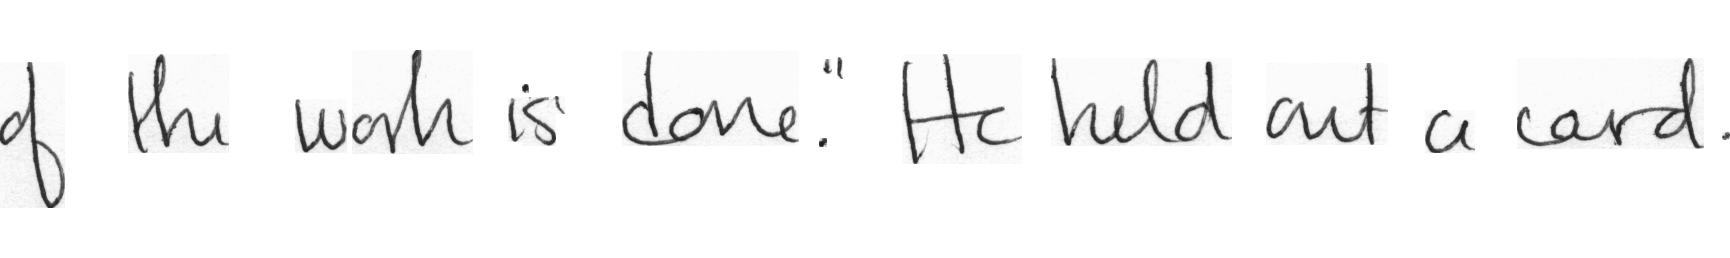 of the work is done." He held out a card.